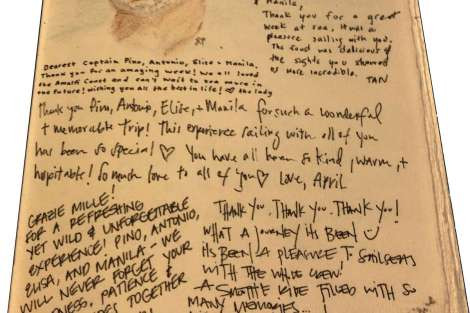 Manila,
Thank you for a great
week at sea, it was a
pleasure sailing with you.
The food was delicious &
the sights you showed
us more incredible.
TAN
Dearest Captain Pino, Antonio, Elise + Manila,
Thank you for an amazing week! We all loved
the Amalfi Coast and can't wait to see more in
the future! wishing you all the best in life! ♡ the lady
Thank you Pino, Antonio, Elise, + Manila for such a wonderful
+ memorable trip! This experience sailing with all of you
has been so special ♡ You have all been so kind, warm, +
hospitable! So much love to all of you ♡ Love, April
GRAZIE MILLE!
FOR A REFRESHING
YET WILD & UNFORGETTABLE
EXPERIENCE! PINO, ANTONIO,
ELISA, AND MANILA - WE
WILL NEVER FORGET YOUR
PATIENCE &
TOGETHER
THANK YOU. THANK YOU. THANK YOU!
WHAT A JOURNEY ITS BEEN
ITS BEEN A PLEASURE TO
WITH THE CREW!
A RIDE FILLED WITH SO
MANY MEMORIES...!